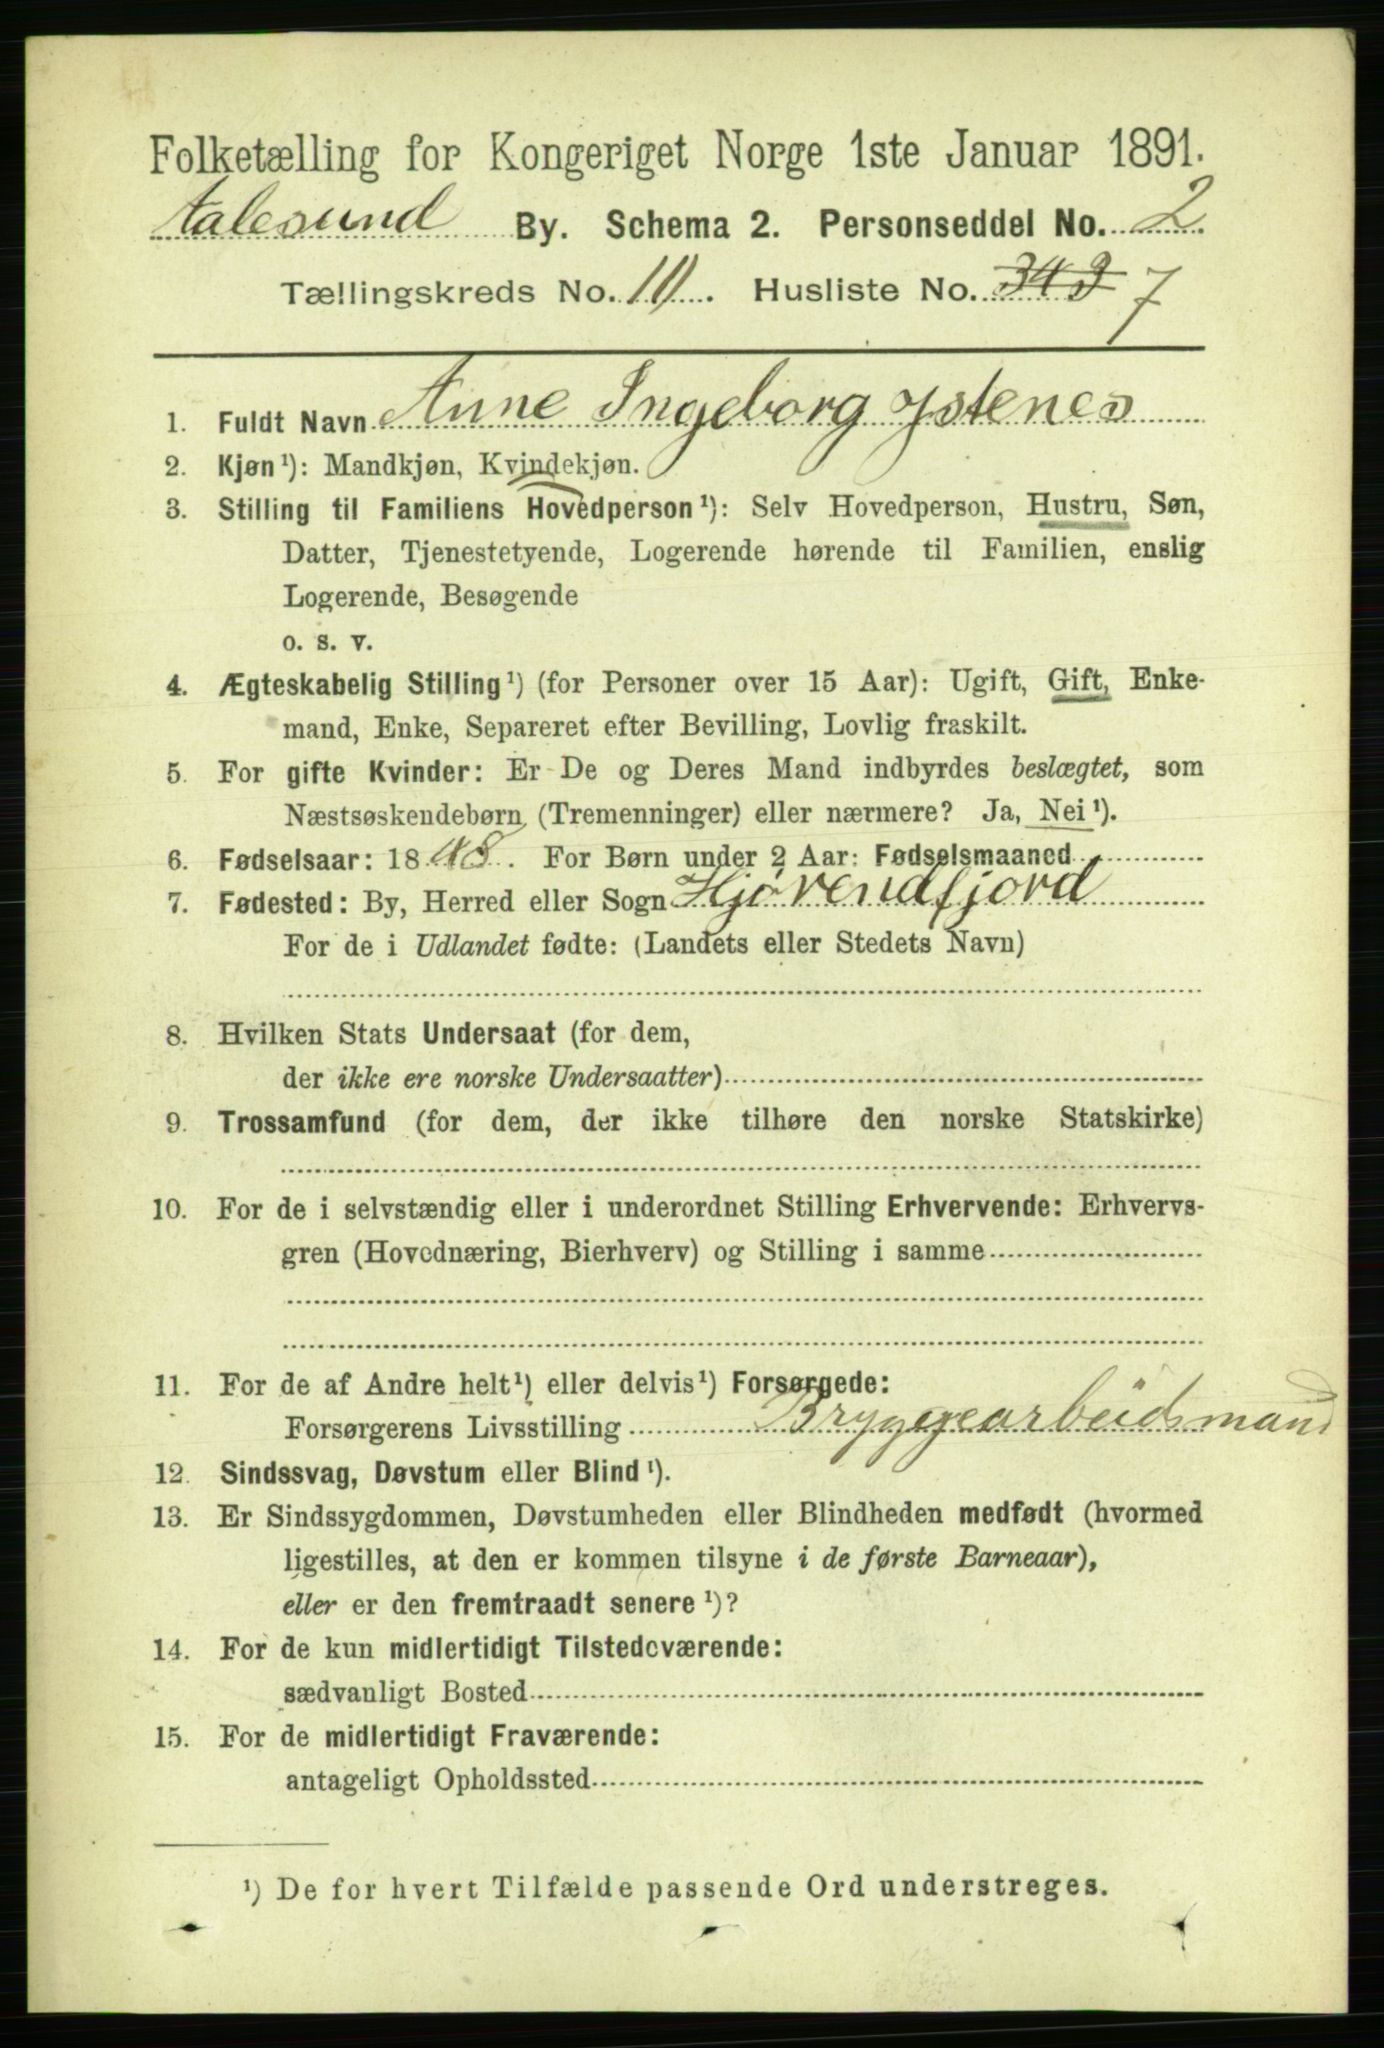 Folketælling for Kongeriget Norge 1ste Januar 1891.
Aalesund By. Schema 2. Personseddel No. 2
Tællingskreds No. 11. Husliste No. 343 7
1. Fuldt Navn Anne Ingeborg Ystenes
2. Kjøn¹): Mandkjøn, Kvindekjøn.
3. Stilling til Familiens Hovedperson¹): Selv Hovedperson, Hustru, Søn,
Datter, Tjenestetyende, Logerende hørende til Familien, enslig
Logerende, Besøgende
o. s. v.
4. Ægteskabelig Stilling¹) (for Personer over 15 Aar): Ugift, Gift, Enke-
mand, Enke, Separeret efter Bevilling, Lovlig fraskilt.
5. For gifte Kvinder: Er De og Deres Mand indbyrdes beslægtet, som
Næstsøskendebørn (Tremenninger) eller nærmere? Ja, Nei¹).
6. Fødselsaar: 1848. For Børn under 2 Aar: Fødselsmaaned
7. Fødested: By, Herred eller Sogn Hjörendfjord
For de i Udlandet fødte: (Landets eller Stedets Navn)
8. Hvilken Stats Undersaat (for dem,
der ikke ere norske Undersaatter)
9. Trossamfund (for dem, der ikke tilhøre den norske Statskirke)
10. For de i selvstændig eller i underordnet Stilling Erhvervende: Erhvervs-
gren (Hovednæring, Bierhverv) og Stilling i samme
11. For de af Andre helt¹) eller delvis¹) Forsørgede:
Forsørgerens Livsstilling Bryggearbeidsmand
12. Sindssvag, Døvstum eller Blind¹).
13. Er Sindssygdommen, Døvstumheden eller Blindheden medfødt (hvormed
ligestilles, at den er kommen tilsyne i de første Barneaar),
eller er den fremtraadt senere¹)?
14. For de kun midlertidigt Tilstedeværende:
sædvanligt Bosted
15. For de midlertidigt Fraværende:
antageligt Opholdssted
¹) De for hvert Tilfælde passende Ord understreges.